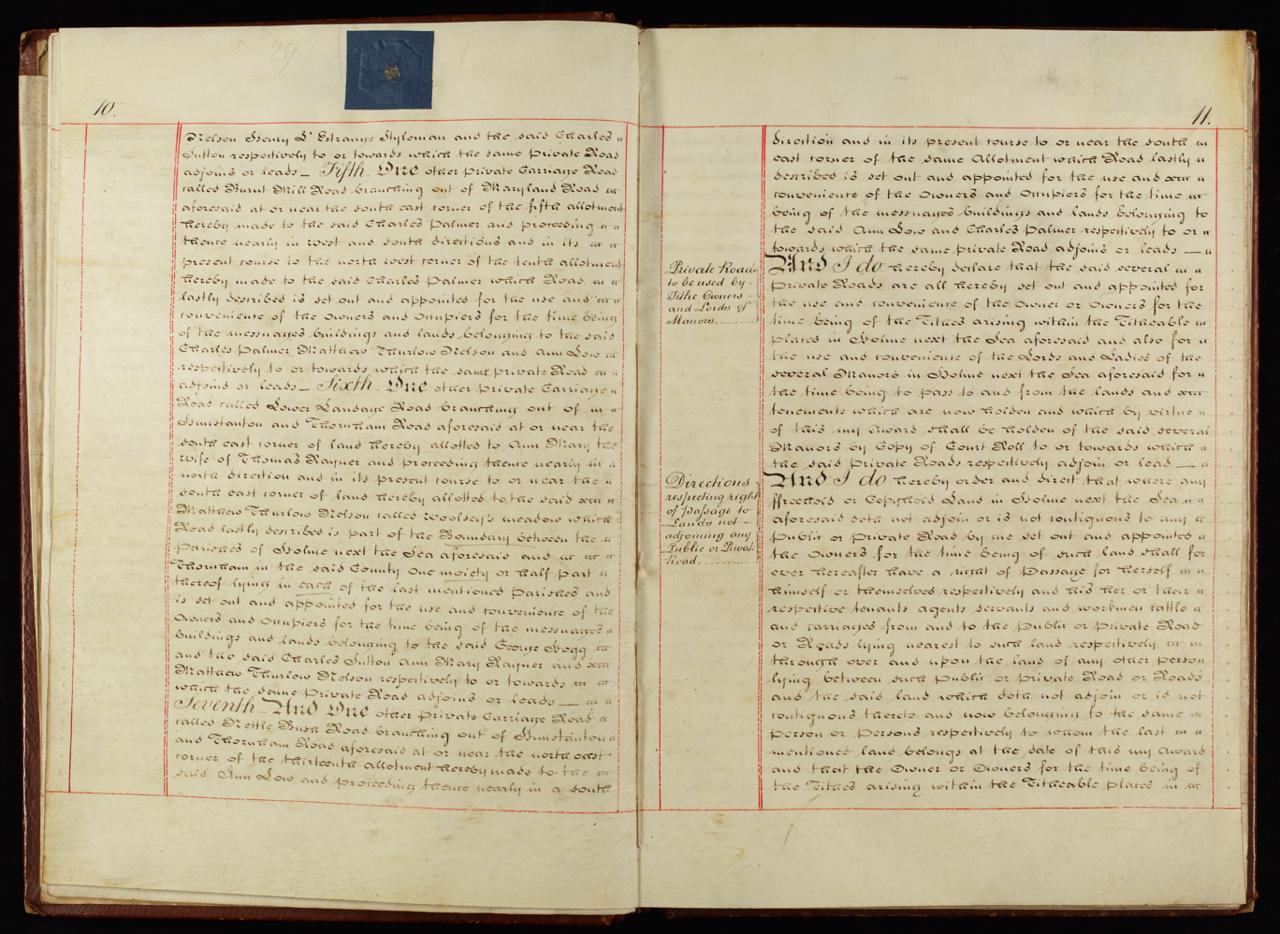 10.
Nelson Henry L'Estrange Styleman and the said Charles
Sutton respectively to or towards which the same Private Road
adjoins or leads — Fifth. One other Private Carriage Road
called Burnt Mill Road branching out of Maryland Road
aforesaid at or near the south east corner of the fifth allotment
hereby made to the said Charles Palmer and proceeding
thence nearly in west and south directions and in its
present course to the north west corner of the tenth allotment
hereby made to the said Charles Palmer which Road
lastly described is set out and appointed for the use and
convenience of the Owners and Occupiers for the time being
of the messuages buildings and lands belonging to the said
Charles Palmer Matthew Thurlow Nelson and Ann Low
respectively to or towards which the same private Road
adjoins or leads — Sixth. One other private Carriage
Road called Lower Landage Road branching out of
Hunstanton and Thornham Road aforesaid at or near the
south east corner of land hereby allotted to Ann Mary the
wife of Thomas Rayner and proceeding thence nearly in
north direction and in its present course to or near the
south east corner of land hereby allotted to the said
Matthew Thurlow Nelson called Woolsey's meadow which
Road lastly described is part of the Boundary between the
Parishes of Holme next the Sea aforesaid and
Thornham in the said County One moiety or half part
thereof lying in each of the last mentioned Parishes and
is set out and appointed for the use and convenience of the
Owners and Occupiers for the time being of the messuages
buildings and lands belonging to the said George Hogg
and the said Charles Sutton Ann Mary Rayner and
Matthew Thurlow Nelson respectively to or towards
which the same Private Road adjoins or leads —
Seventh — And One other Private Carriage Road
called Nettle Bush Road branching out of Hunstanton
and Thornham Road aforesaid at or near the north east
corner of the thirteenth allotment hereby made to the
said Ann Low and proceeding thence nearly in a south
11.
direction and in its present course to or near the south
east corner of the same Allotment which Road lastly
described is set out and appointed for the use and
convenience of the Owners and Occupiers for the time
being of the messuages buildings and lands belonging to
the said Ann Low and Charles Palmer respectively to or
towards which the same private Road adjoins or leads —
Private Roads
to be used by
Tithe Owners
and Lords of
Manors
And I do hereby declare that the said several
Private Roads are all hereby set out and appointed for
the use and convenience of the Owner or Owners for the
time being of the Tithes arising within the Titheable
places in Holme next the Sea aforesaid and also for
the use and convenience of the Lords and Ladies of the
several Manors in Holme next the Sea aforesaid for
the time being to pass to and from the lands and
tenements which are now holden and which by virtue
of this my Award shall be holden of the said several
Manors by Copy of Court Roll to or towards which
the said Private Roads respectively adjoin or lead —
Directions
respecting right
of Passage to
Lands not
adjoining any
Public or Private
Road
And I do hereby order and direct that where any
ffreehold or Copyhold Land in Holme next the Sea
aforesaid doth not adjoin or is not contiguous to any
Public or Private Road by me set out and appointed
the Owners for the time being of such land shall for
ever hereafter have a right of Passage for herself
himself or themselves respectively and his her or their
respective tenants agents servants and workmen cattle
and carriages from and to the Public or Private Road
or Roads lying nearest to such land respectively
through over and upon the land of any other person
lying between such Public or private Road or Roads
and the said land which doth not adjoin or is not
contiguous thereto and now belonging to the same
person or Persons respectively to whom the last
mentioned land belongs at the date of this my Award
and that the Owner or Owners for the time being of
the Tithes arising within the Titheable places in